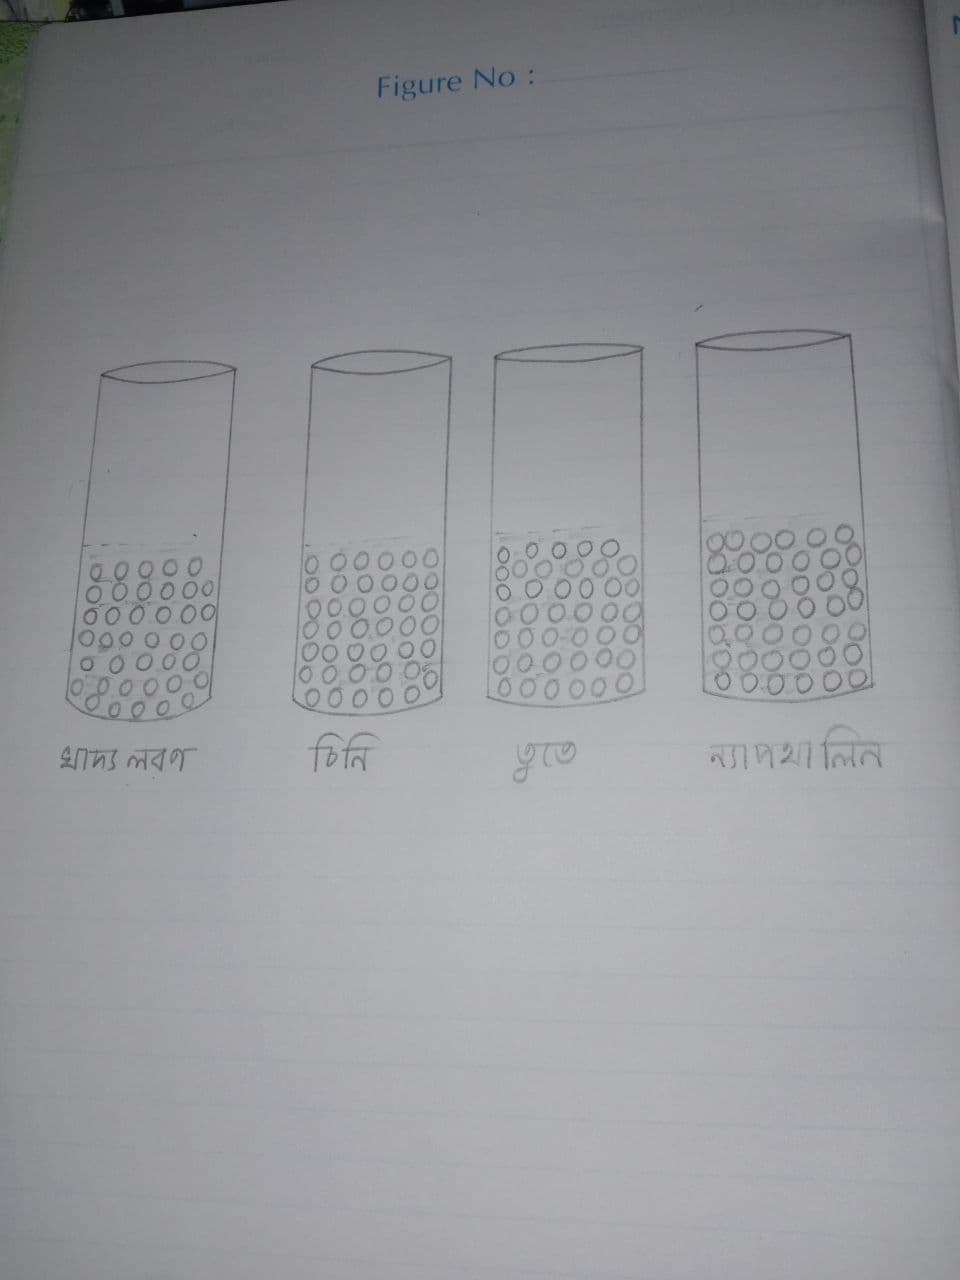 Figure No :
খাদ্য লবণ
চিনি
তুতে
ন্যাপথালিন